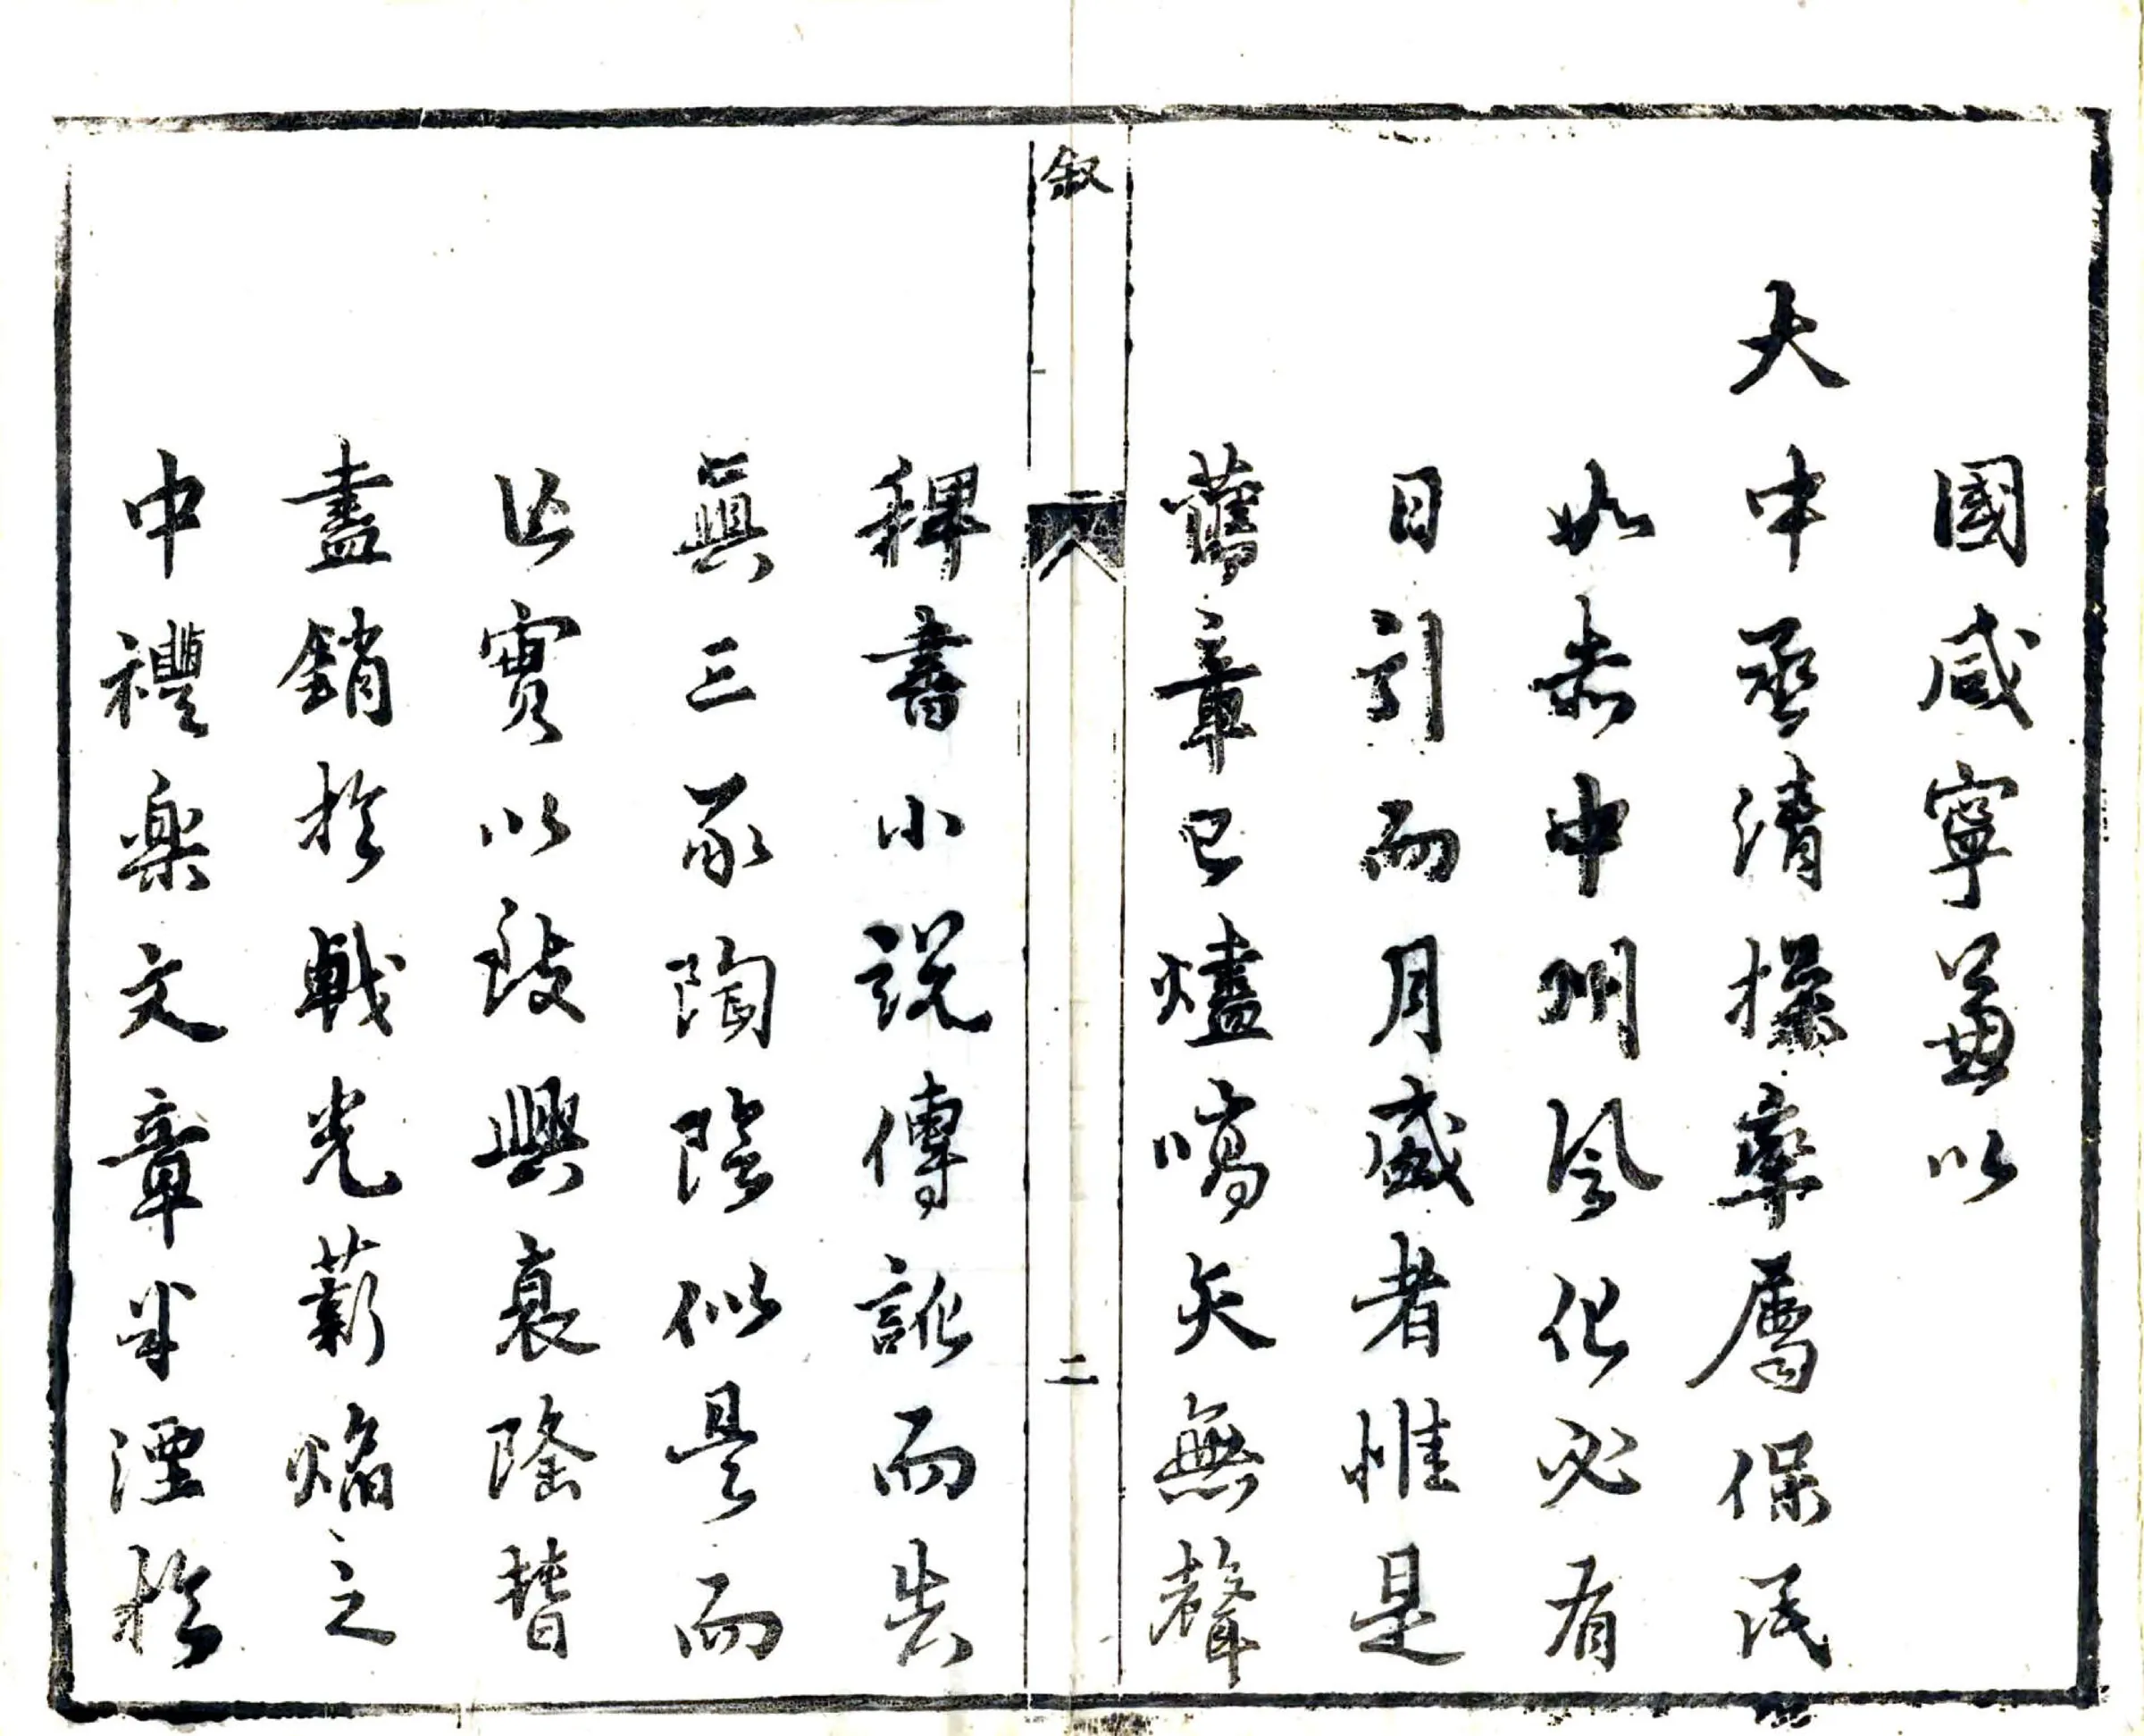 國咸寧蓋以
大中丞清操率屬保民
如赤中州風化必有
日引而月盛者惟是
舊章已燼嚆矢無聲
叙
二
稗書小說傳訛而失
眞三豕陶陰似是而
非實以致興衰隆替
盡銷於戟光薪焰之
中禮樂文章半湮於